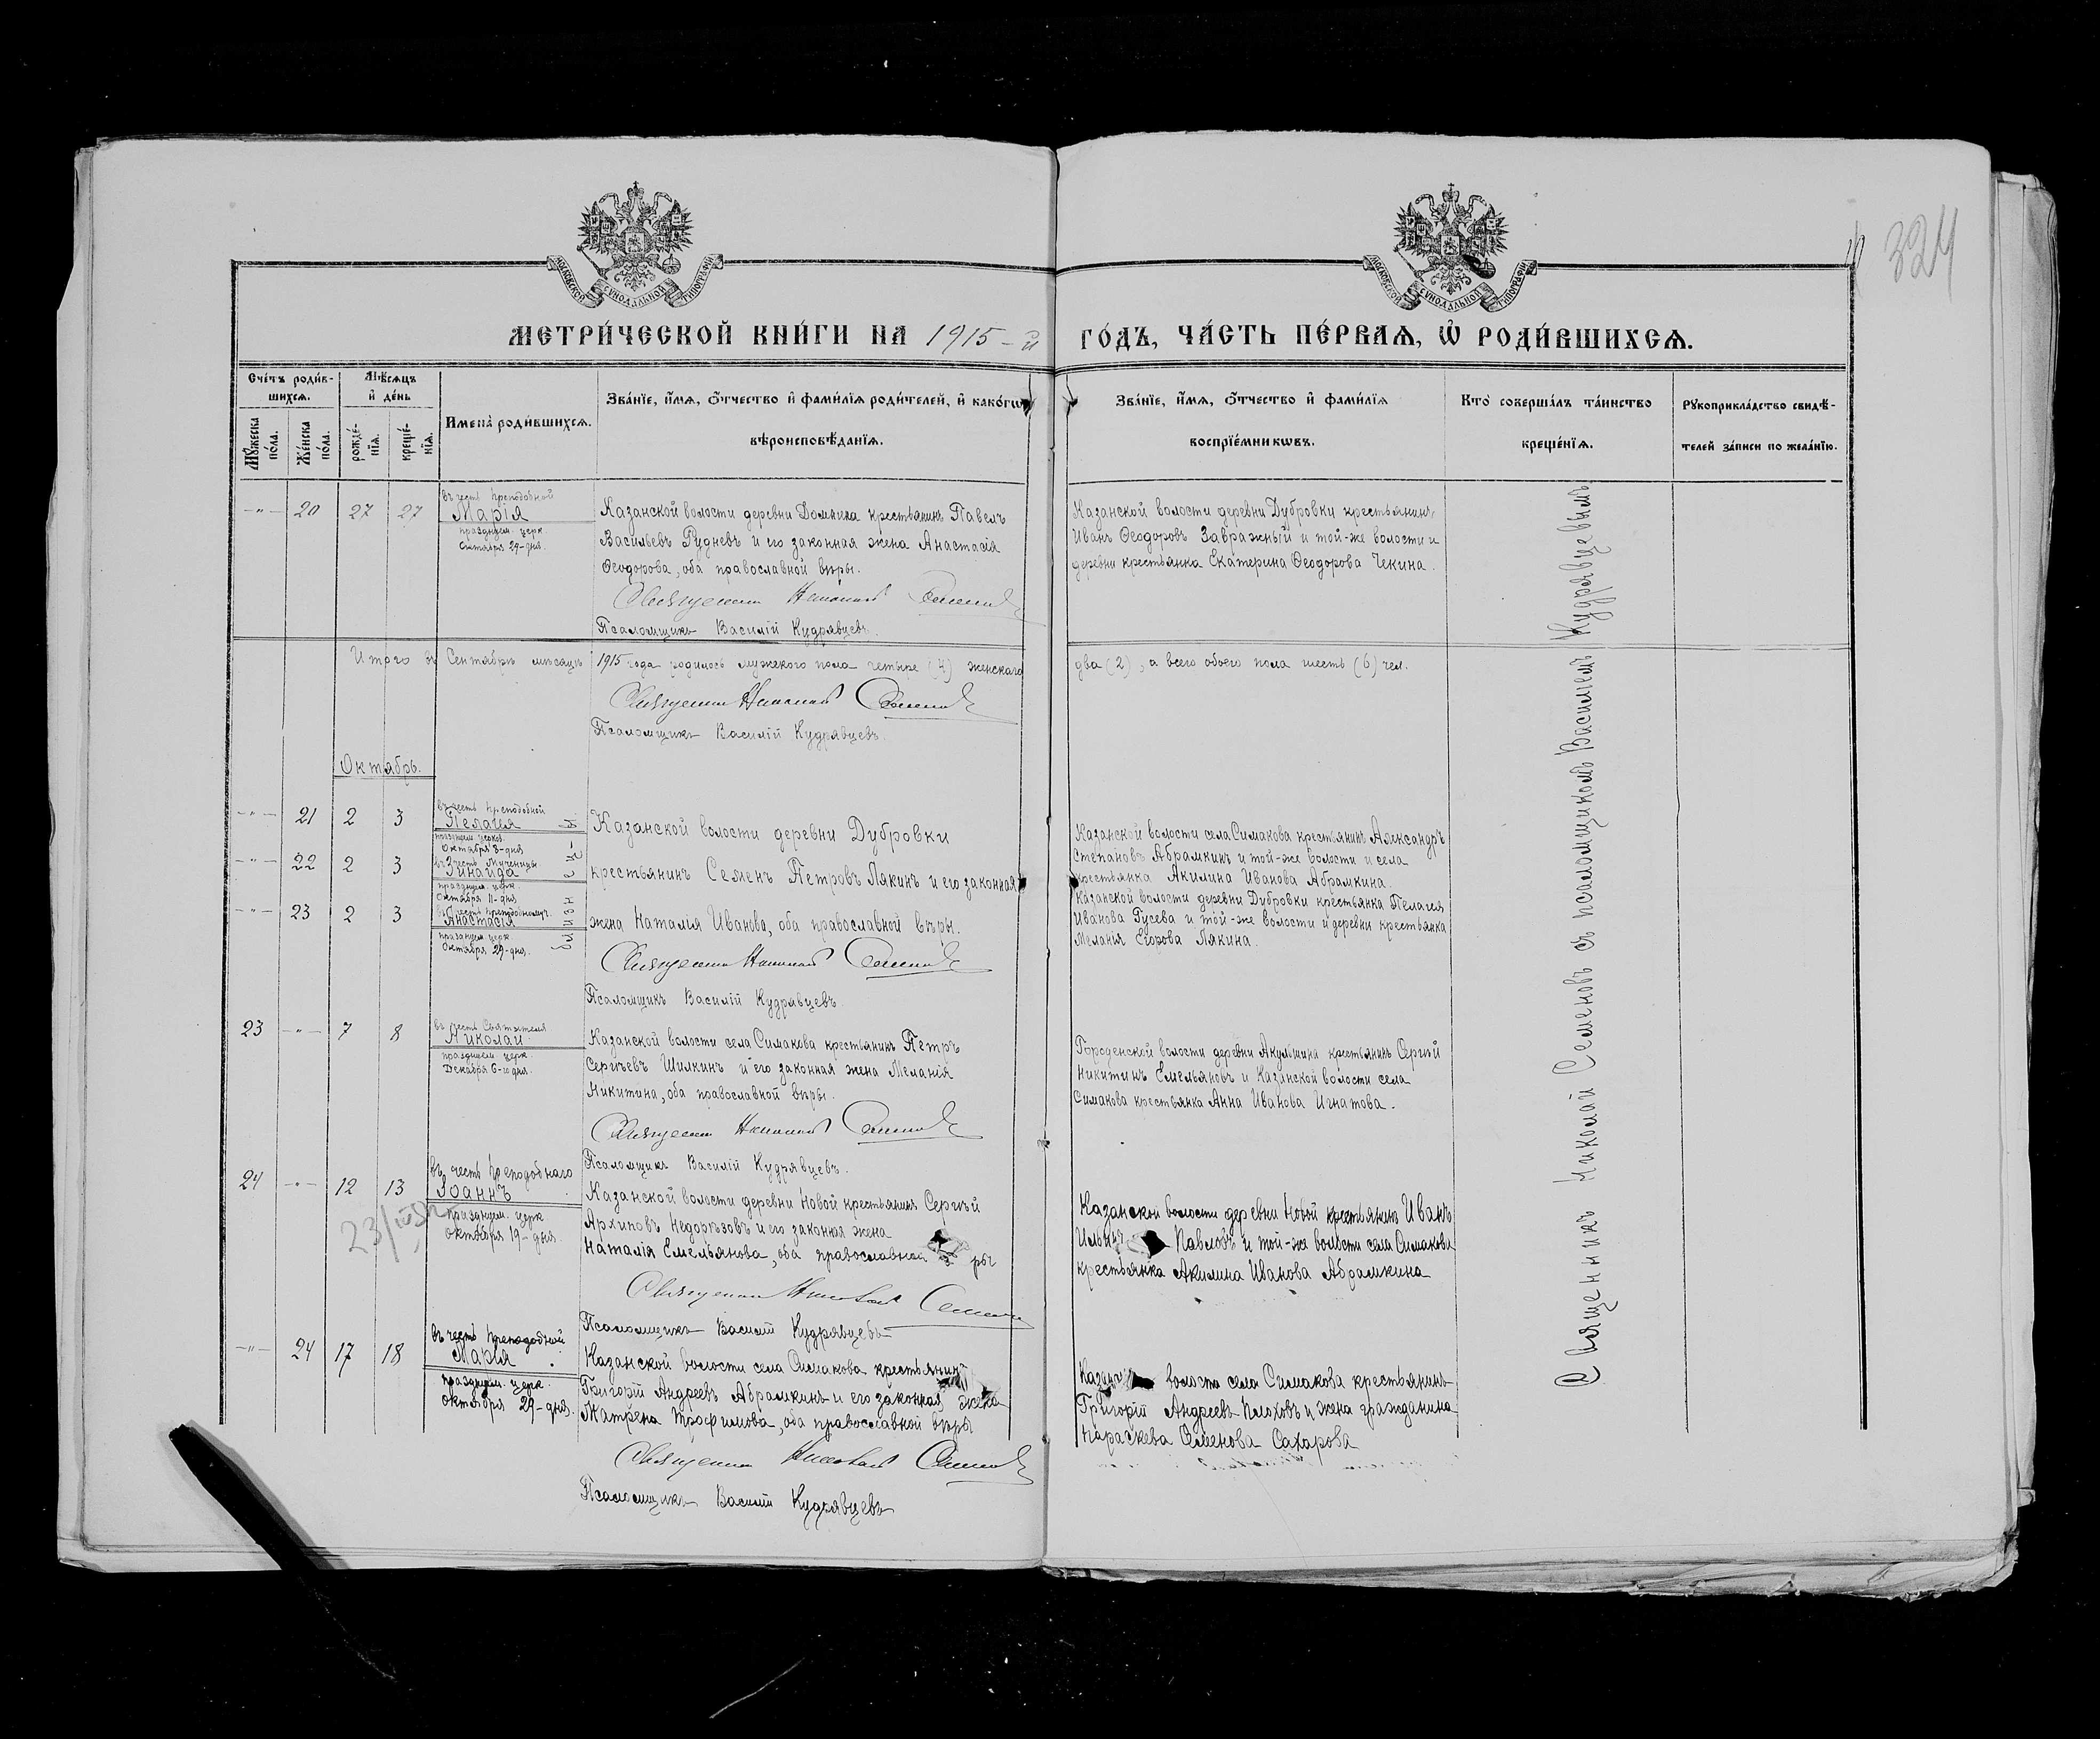 324
МОСКОВСКОЙ СУНОДАЛЬНОЙ ТИПОГРАФІИ
МОСКОВСКОЙ СУНОДАЛЬНОЙ ТИПОГРАФІИ
МЕТРИ́ЧЕСКОЙ КНИ́ГИ НА 1915-й ГО́ДЪ, ЧА́СТЬ ПЕ́РВАѦ, Ѡ҆ РОДИ́ВШИХСѦ.
Сче́тъ роди́в-
шихсѧ.
Мѣ́сѧцъ
и҆ де́нь
Мꙋ́жеска
по́ла.
Же́нска
по́ла.
рожде́-
нїѧ.
креще́-
нїѧ.
Имена̀ роди́вшихсѧ.
Зва́нїе, и҆́мѧ, ѻ҆́тчество и҆ фами́лїѧ роди́телей, и҆ како́гѡ
вѣроисповѣ́данїѧ.
Зва́нїе, и҆́мѧ, ѻ҆́тчество и҆ фами́лїѧ
воспрїе́мникѡвъ.
Кто̀ соверша́лъ та́инство
креще́нїѧ.
Рꙋкоприкла́дство свидѣ́-
телей за́писи по жела́нїю.
-"- 20 27 27
въ честь преподобной
Марія
празднуем. церк.
Октября 29-дня.
Казанской волости деревни Домнина крестьянинъ Павелъ
Васильевъ Рудневъ и его законная жена Анастасія
Ѳеодорова, оба православной вѣры.
Священникъ Николай Семеновъ
Псаломщикъ Василій Кудрявцевъ.
Казанской волости деревни Дубровки крестьянинъ
Иванъ Ѳеодоровъ Завражный и той-же волости и
деревни крестьянка Екатерина Ѳеодорова Чекина.
Итого въ Сентябрѣ мѣсяцѣ 1915 года родилось мужского пола четыре (4) женскаго два (2), а всего обоего пола шесть (6) чел.
Священникъ Николай Семеновъ
Псаломщикъ Василій Кудрявцевъ.
Октябрь.
-"- 21 2 3
въ честь преподобной
Пелагея
Октября 8-дня
-"- 22 2 3
въ честь мученицы
Зинаида
празднуем. церк.
Октября 11-дня
-"- 23 2 3
Анастасія
празднуем. церк.
Октября 29-дня.
близнецы
Казанской волости деревни Дубровки
крестьянинъ Семенъ Петровъ Лякинъ и его законная
жена Наталія Иванова, оба православной вѣры.
Священникъ Николай Семеновъ
Псаломщикъ Василій Кудрявцевъ.
Казанской волости села Симакова крестьянинъ Александръ
Степановъ Абрамкинъ и той-же волости и села
крестьянка Акилина Иванова Абрамкина.
Казанской волости деревни Дубровки крестьянка Пелагея
Иванова Гусева и той-же волости и деревни крестьянка
Меланія Егорова Лякина.
23 -"- 7 8
въ честь Святителя
Николай
празднуем. церк
Декабря 6-го дня.
Казанской волости села Симакова крестьянинъ Петръ
Сергѣевъ Шилкинъ и его законная жена Меланія
Никитина, оба православной вѣры.
Священникъ Николай Семеновъ
Псаломщикъ Василій Кудрявцевъ.
Городенской волости деревни Акульшина крестьянинъ Сергѣй
Никитинъ Емельяновъ и Казанской волости села
Симакова крестьянка Анна Иванова Игнатова.
24 -"- 12 13
въ честь преподобнаго
Іоаннъ
празднуем. церк
октября 19-дня.
Казанской волости деревни Новой крестьянинъ Сергѣй
Архиповъ Недорѣзовъ и его законная жена
Наталія Емельянова, оба православной
Священникъ Николай Семеновъ
Псаломщикъ Василій Кудрявцевъ
Казанской волости деревни Новой крестьянинъ Иванъ
Павловъ и той-же волости села Симакова
крестьянка Акилина Иванова Абрамкина
-"- 24 17 18
въ честь преподобной
Марія
празднуем. церк.
октября 29-дня.
Казанской волости села Симакова крестьянинъ
Григорій Андреевъ Абрамкинъ и его законная жена
Матрена Трофимова, оба православной вѣры
Священникъ Николай Семеновъ
Псаломщикъ Василій Кудрявцевъ
волости села Симакова крестьянинъ
Григорій Андреевъ Плоховъ и жена гражданина
Параскева Семенова Сахарова
Священникъ Николай Семеновъ съ псаломщикомъ Василіемъ Кудрявцевымъ